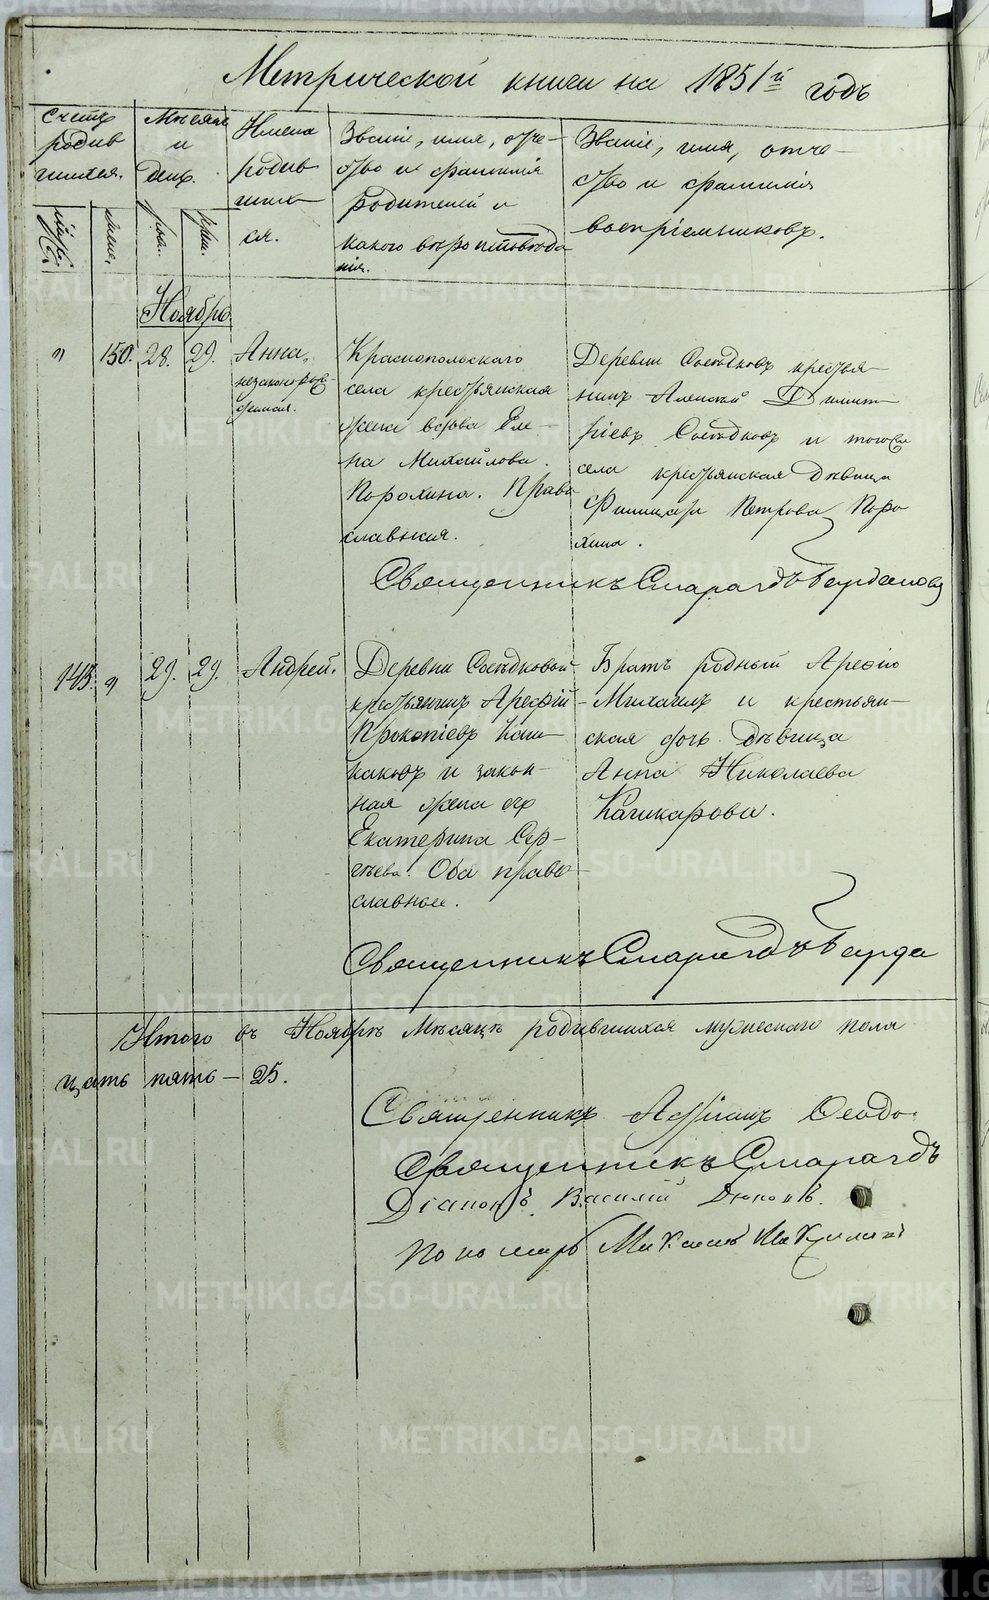 Метрической книги на 1851й годъ
Счетъ родившихся.
Мѣсяцъ и день.
Имена родившихся.
Званіе, имя, отчество и фамилія родителей и какого вѣроисповѣданія.
Званіе, имя, отчество и фамилія воспріемниковъ.
Ноябрь.
" 150. 28. 29. Анна, незаконорожденная.
Краснопольскаго
села крестьянская
жена вдова Еле-
на Михайлова
Порохина. Право
славная.
Деревни Сосѣдковъ крестья-
нинъ Алексій Димит-
ріевъ Сосѣдковъ и того же
села крестьянская дѣвица
Фитицата Петрова Поро
хина.
Священникъ Смарагдъ Бирдановъ
145. " 29. 29. Андрей.
Деревни Сосѣдковой
крестьянинъ Арефій
Прокопіевъ Каш-
каровъ и закон-
ная жена его
Екатерина Сер-
гѣева. Оба право
славные.
Братъ родный Арефію
Михаилъ и крестьян-
ская дочь дѣвица
Анна Николаева
Кашкарова.
Священникъ Смарагдъ
Итого въ Ноябрѣ Мѣсяцѣ родившихся мужескаго пола
цать пять – 25.
Священникъ Ѳеодо-
Священникъ Смарагдъ
Діаконъ Василій
Пономарь Михаилъ
METRIKI.GASO-URAL.RU